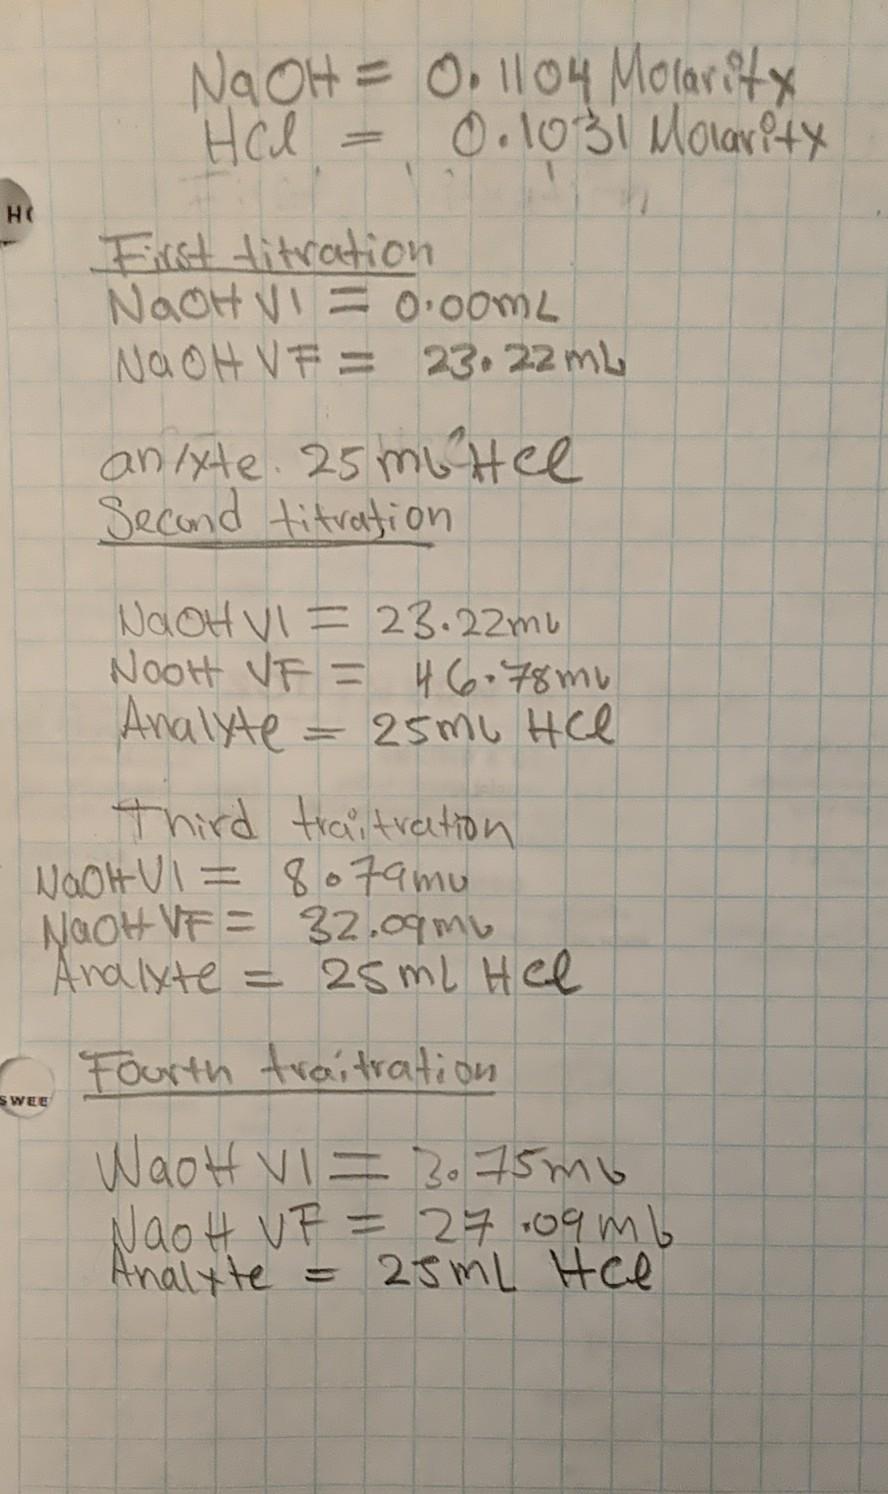 NaOH = 0.1104 Molarity
HCl = 0.1031 Molarity
H
First titration
NaOH VI = 0.00mL
NaOH VF = 23.22mL
anlyte. 25 mL HCl
Second titration
NaOH VI = 23.22mL
NaOH VF = 46.78mL
Analyte = 25mL HCl
Third traitration
NaOH VI = 8.79mL
NaOH VF = 32.09mL
Analyte = 25 mL HCl
Fourth traitration
SWEE
NaOH VI = 3.75mL
NaOH VF = 27.09mL
Analyte = 25mL HCl